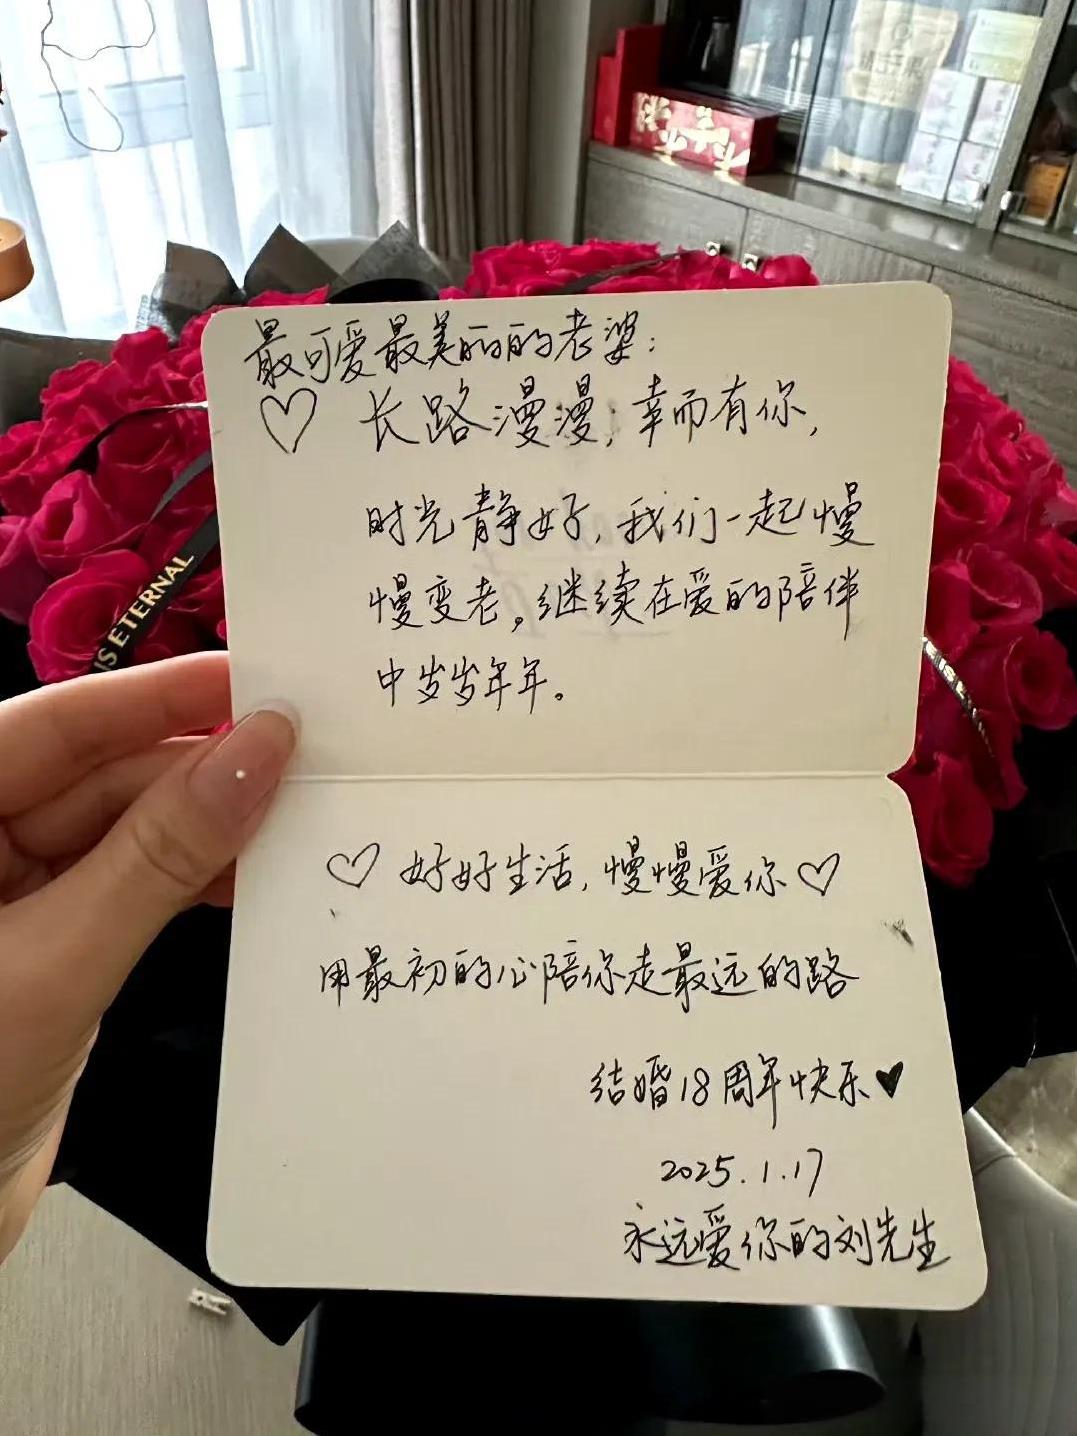 最可爱最美丽的老婆：
长路漫漫，幸而有你，
时光静好，我们一起慢
慢变老。继续在爱的陪伴
中岁岁年年。
好好生活，慢慢爱你
用最初的心陪你走最远的路
结婚18周年快乐
2025.1.17
永远爱你的刘先生
IS ETERNAL